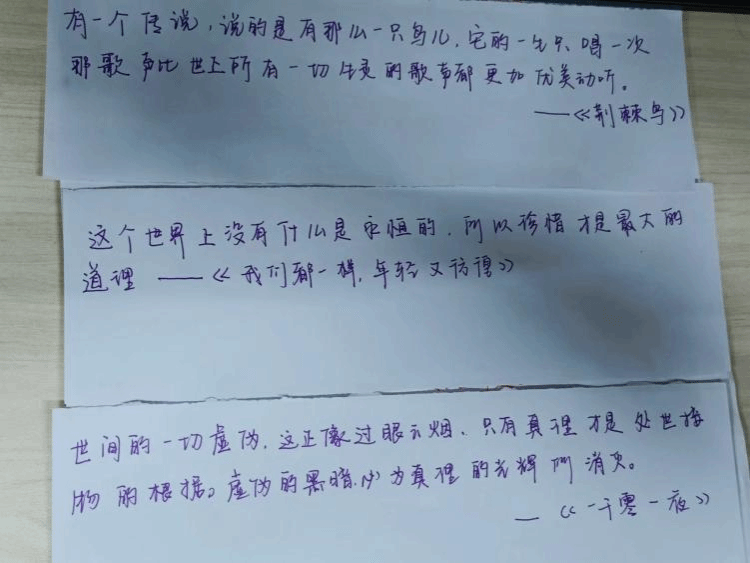 有一个传说，说的是有那么一只鸟儿，它的一生只唱一次
那歌声比世上所有一切生灵的歌声都更加优美动听。
——《荆棘鸟》
这个世界上没有什么是永恒的，所以珍惜才是最大的
道理 ——《我们都一样，年轻又彷徨》
世间的一切虚伪，这正像过眼云烟，只有真理才是处世接
物的根据。虚伪的黑暗，必为真理的光辉所消灭。
—《一千零一夜》